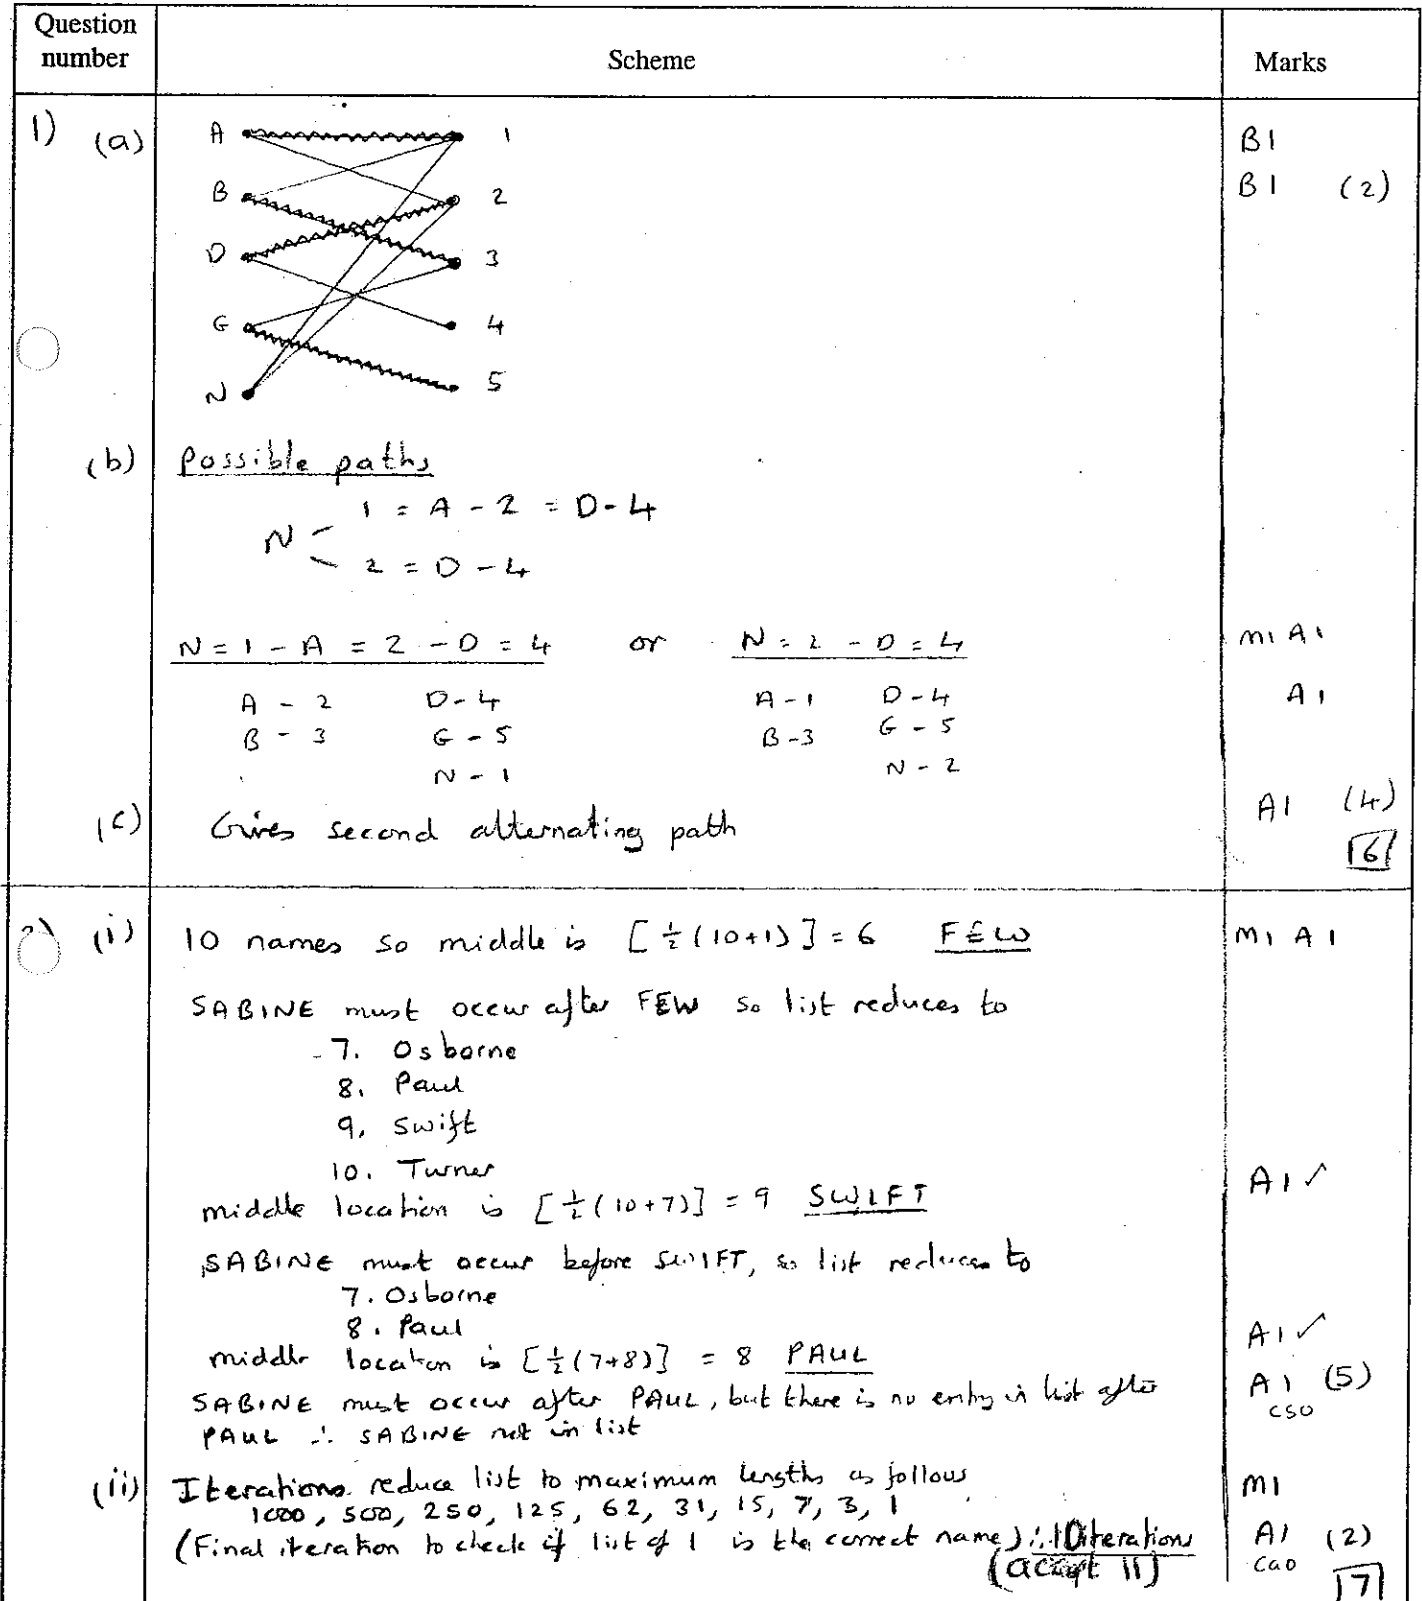 Question number Scheme Marks
1) (a) A 1 B1
B 2 B1 (2)
D 3
G 4
N 5
(b) Possible paths
1 = A - 2 = D - 4
N
2 = D - 4
N = 1 - A = 2 - D = 4 or N = 2 - D = 4 M1 A1
A - 2 D - 4 A - 1 D - 4 A1
B - 3 G - 5 B - 3 G - 5
N - 1 N - 2
(c) Gives second alternating path A1 (4)
[6]
2) (i) 10 names so middle is [½(10+1)] = 6 FEW M1 A1
SABINE must occur after FEW so list reduces to
7. Osborne
8. Paul
9. Swift
10. Turner
middle location is [½(10+7)] = 9 SWIFT A1 ✓
SABINE must occur before SWIFT, so list reduces to
7. Osborne
8. Paul
middle location is [½(7+8)] = 8 PAUL A1 ✓
SABINE must occur after PAUL, but there is no entry in list after A1 (5)
PAUL ∴ SABINE not in list cso
(ii) Iterations reduce list to maximum lengths as follows M1
1000, 500, 250, 125, 62, 31, 15, 7, 3, 1
(Final iteration to check if list of 1 is the correct name) ∴ 10 iterations A1 (2)
(accept 11) cao
[7]